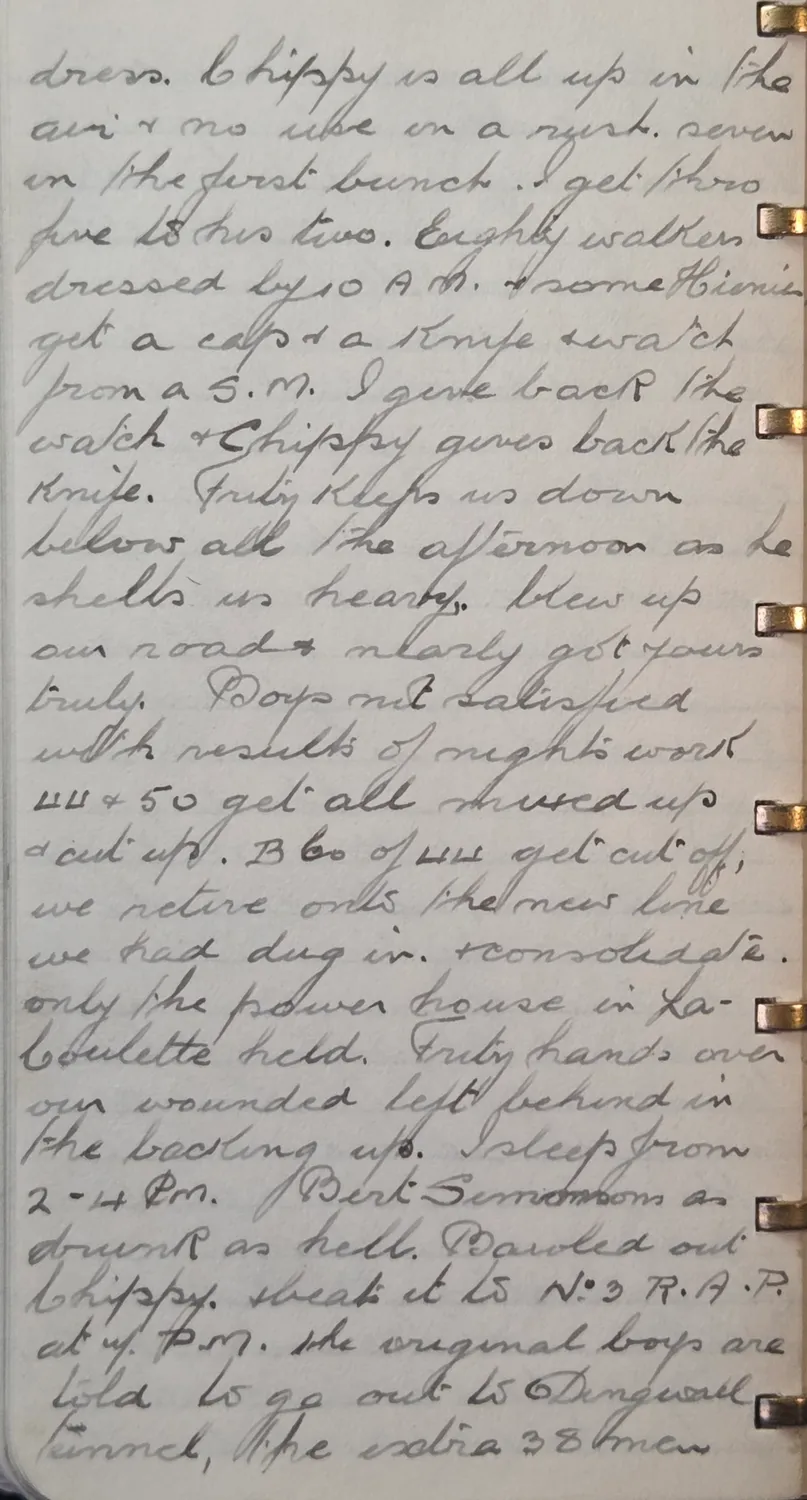 dress. Chippy is all up in the
air & no use in a rush. seven
in the first bunch. I get thro
five to his two. Eighty walkers
dressed by 10 A.M. & some Hienies
get a cap & a Knife & watch
from a S.M. I give back the
watch & Chippy gives back the
Knife. Fritz Keeps us down
below all the afternoon as he
shells us heavy. blew up
our road & nearly got yours
truly. Boys not satisfied
with results of nights work
44 & 50 get all mused up
& cut up. B Co of 44 get cut off,
we retire onto the new line
we had dug in. & consolidate.
only the power house in La-
Coulette held. Fritz hands over
our wounded left behind in
the backing up. I sleep from
2-4 P.m. Bert Simmons as
drunk as hell. Bawled out
Chippy. & beats it to No 3 R.A.P.
at P.M. the original boys are
told to go out to Dingwall
tunnel, the extra 38 men